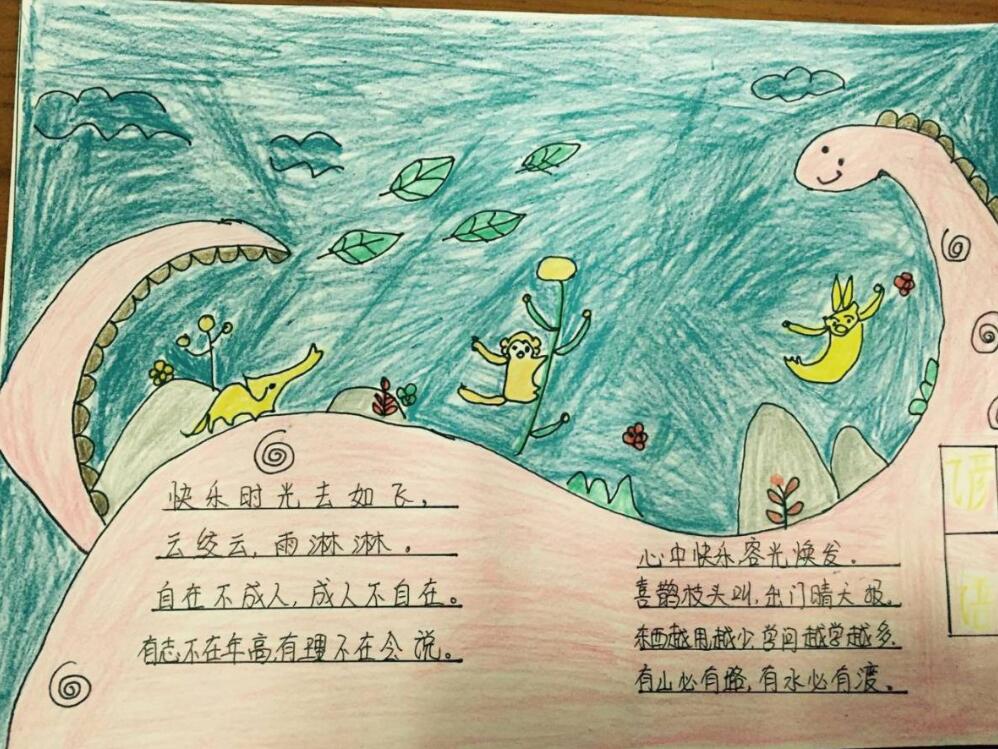 快乐时光去如飞，
云绞云，雨淋淋。
自在不成人，成人不自在。
有志不在年高，有理不在会说。
心中快乐容光焕发。
喜鹊枝头叫，出门晴天报。
东西越用越少，学问越学越多。
有山必有路，有水必有渡。
谚
语